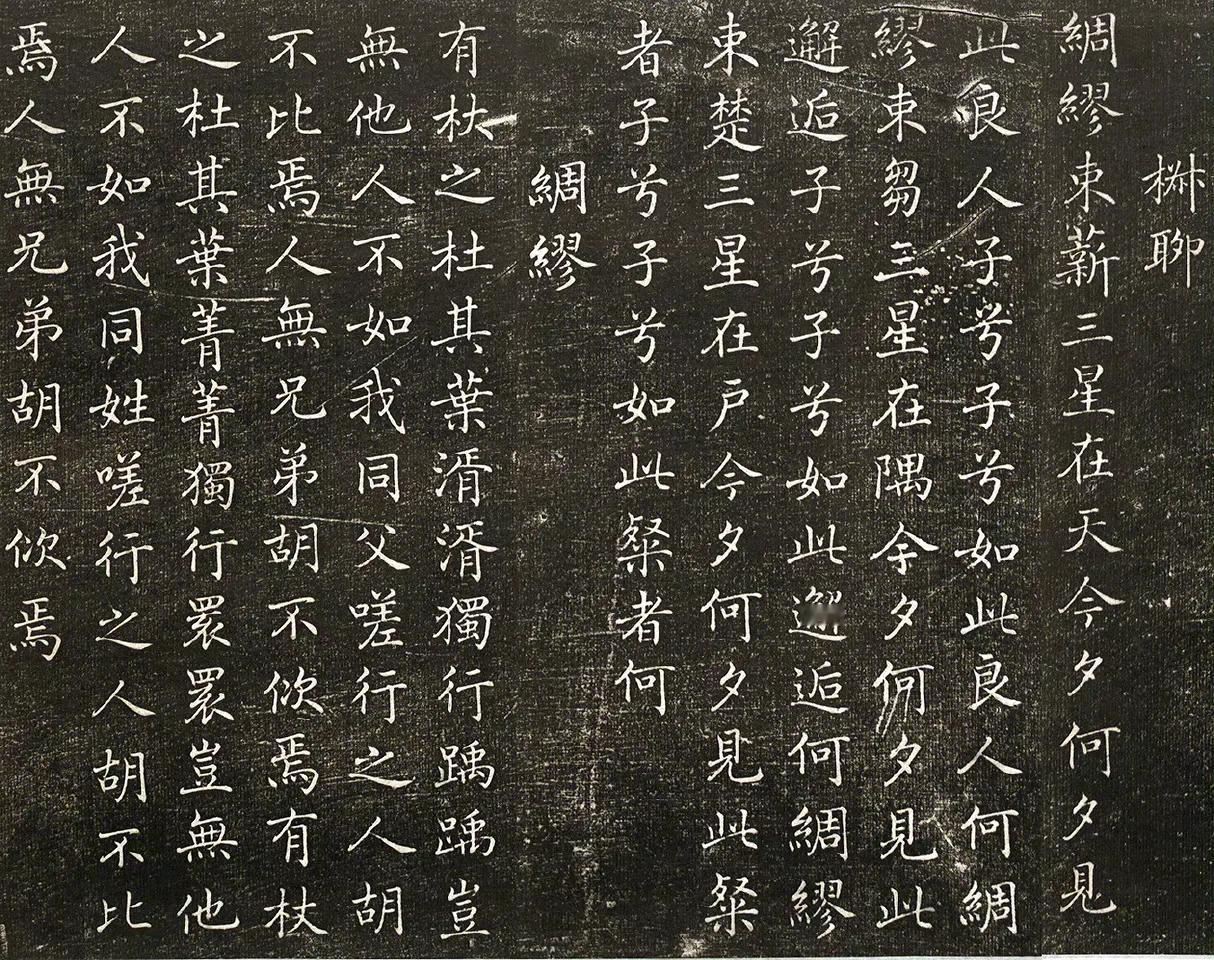 椒聊
綢繆束薪三星在天今夕何夕見
此良人子兮子兮如此良人何綢
繆束芻三星在隅余夕何夕見此
邂逅子兮子兮如此邂逅何綢繆
束楚三星在戶今夕何夕見此粲
者子兮子兮如此粲者何
綢繆
有杕之杜其葉湑湑獨行踽踽豈
無他人不如我同父嗟行之人胡
不比焉人無兄弟胡不佽焉有杕
之杜其葉菁菁獨行睘睘豈無他
人不如我同姓嗟行之人胡不比
焉人無兄弟胡不佽焉